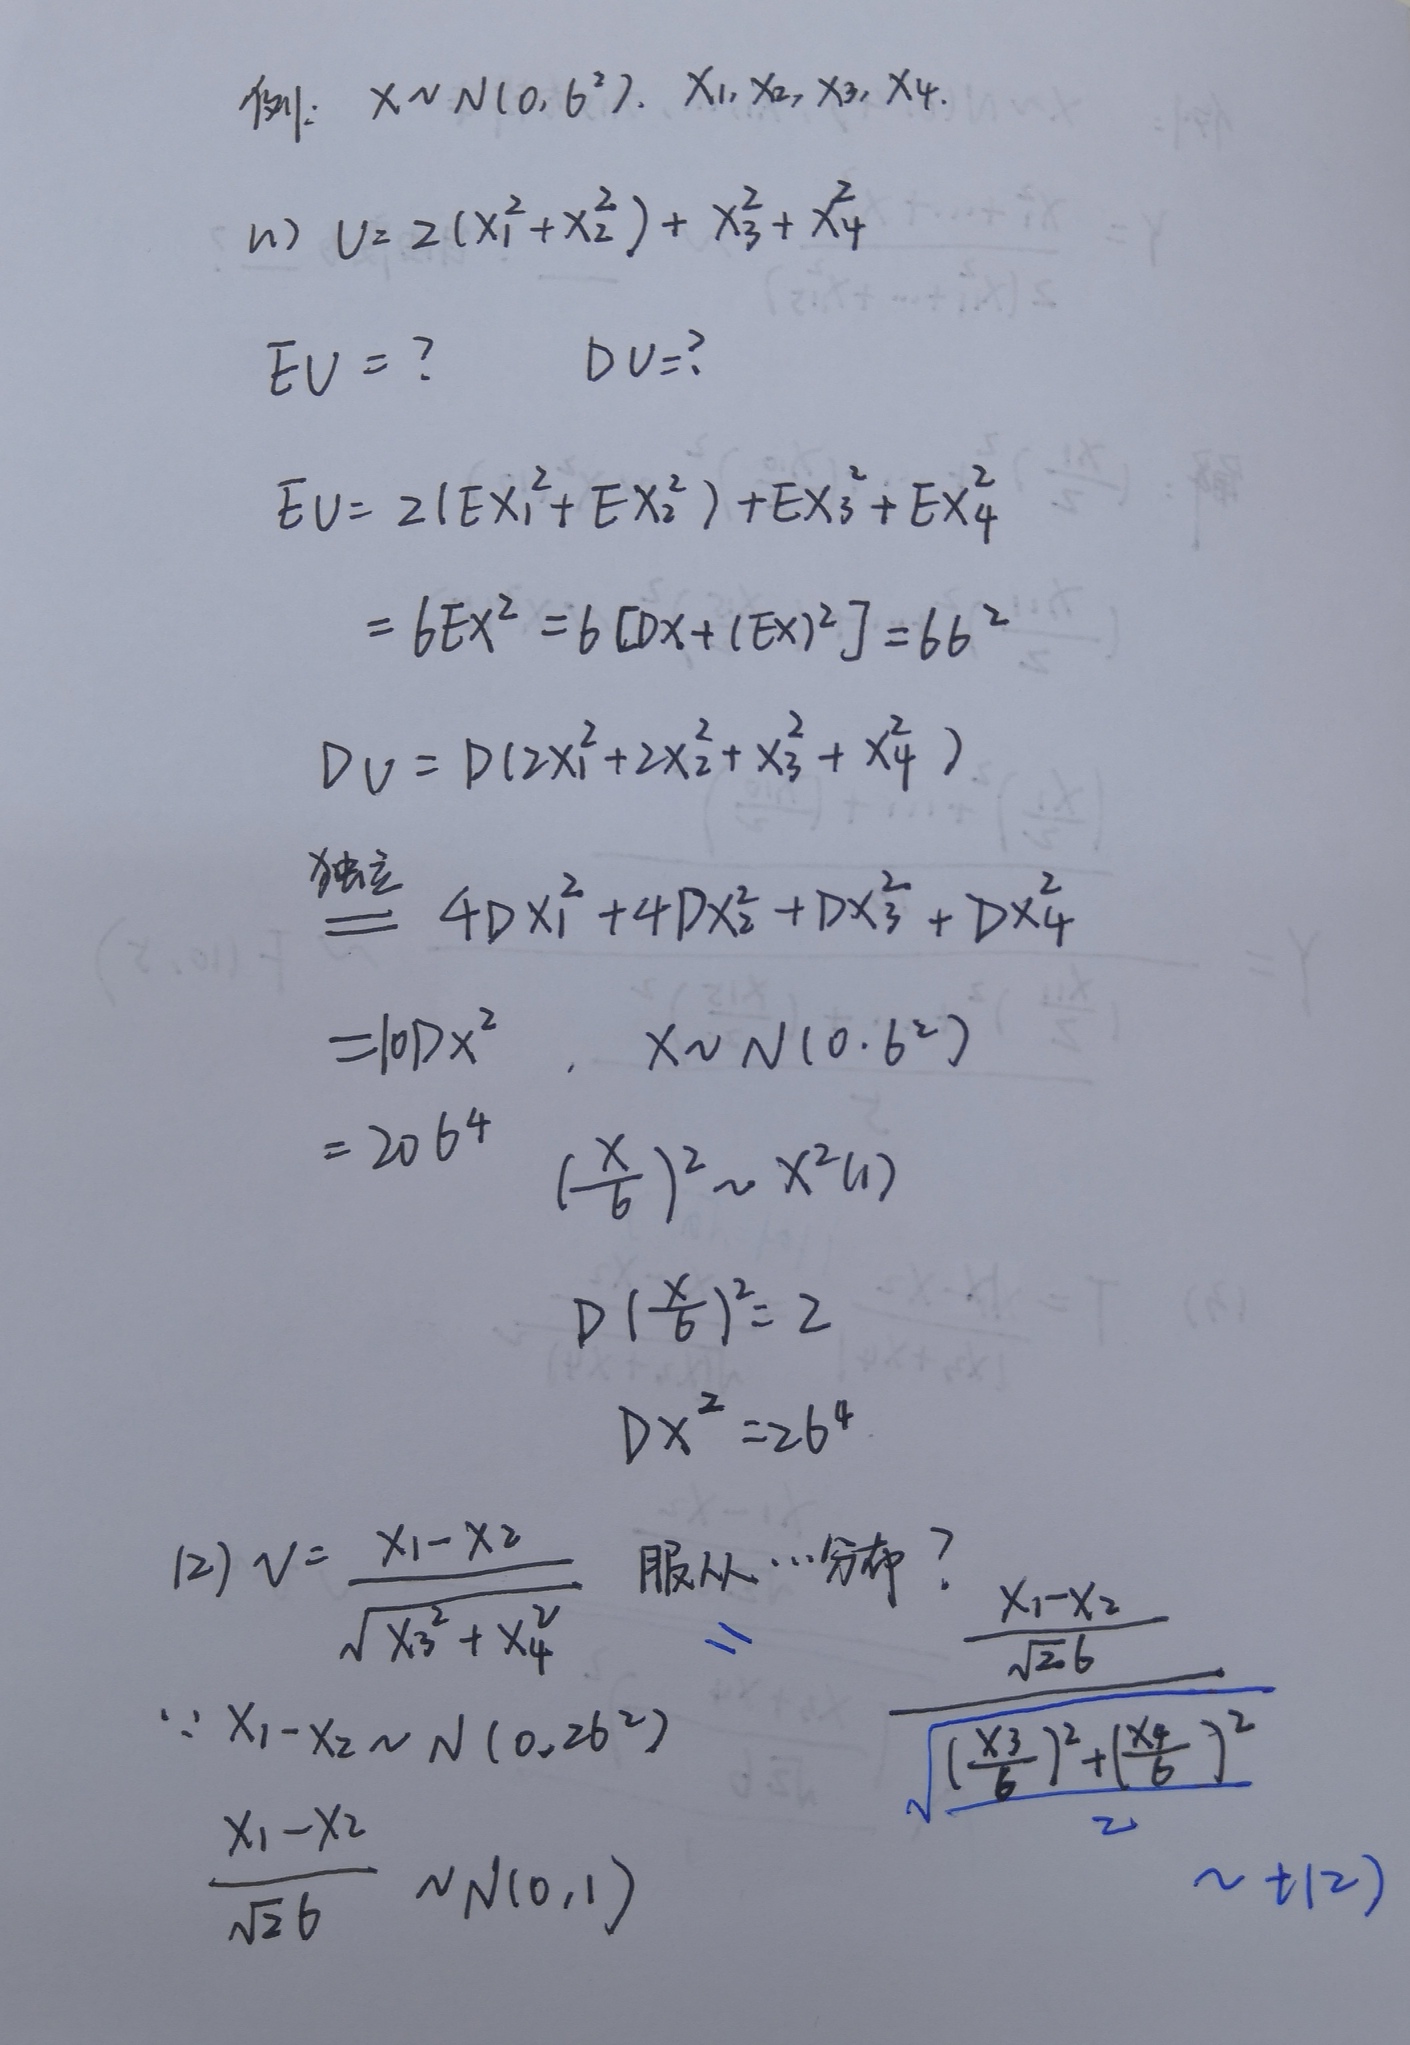 例: X~N(0,σ²). X₁, X₂, X₃, X₄.
(1) U=2(X₁²+X₂²)+X₃²+X₄²
EU=? DU=?
EU=2(EX₁²+EX₂²)+EX₃²+EX₄²
=6EX²=6[DX+(EX)²]=6σ²
DU=D(2X₁²+2X₂²+X₃²+X₄²)
独立
= 4DX₁²+4DX₂²+DX₃²+DX₄²
=10DX², X~N(0.σ²)
=20σ⁴
(X/σ)²~X²(1)
D(X/σ)²=2
DX²=2σ⁴
(2) V=(X₁-X₂)/√(X₃²+X₄²) 服从…分布?
= ((X₁-X₂)/(√2σ))/√(((X₃/σ)²+(X₄/σ)²)/2)
∵ X₁-X₂~N(0,2σ²)
(X₁-X₂)/(√2σ) ~N(0,1)
~t(2)